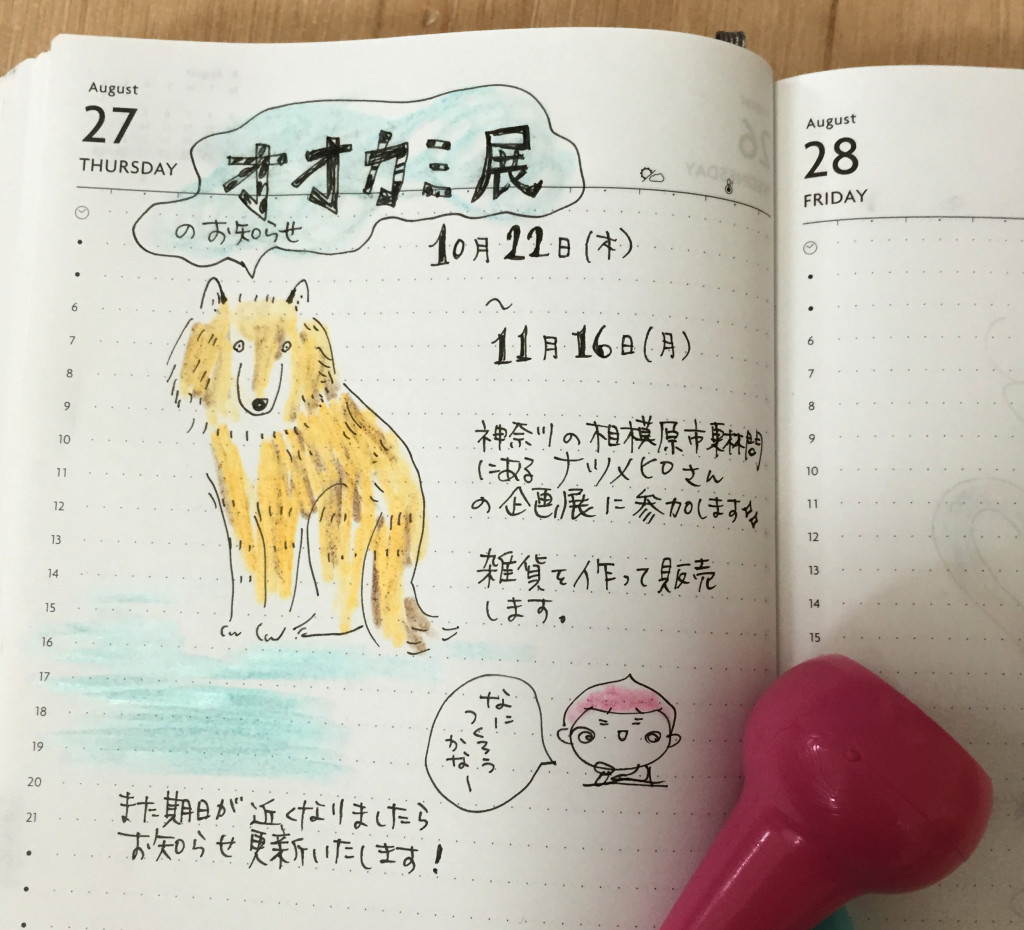 August
27
THURSDAY
オオカミ展
のお知らせ
10月22日(木)
〜
11月16日(月)
神奈川の相模原市東林間
にある ナツメヒロさん
の企画展に参加します
雑貨を作って販売
します。
なに
つくろう
かなー
また期日が近くなりましたら
お知らせ更新いたします!
6
7
8
9
10
11
12
13
14
15
16
17
18
19
20
21
August
28
FRIDAY
6
7
8
9
10
11
12
13
14
15